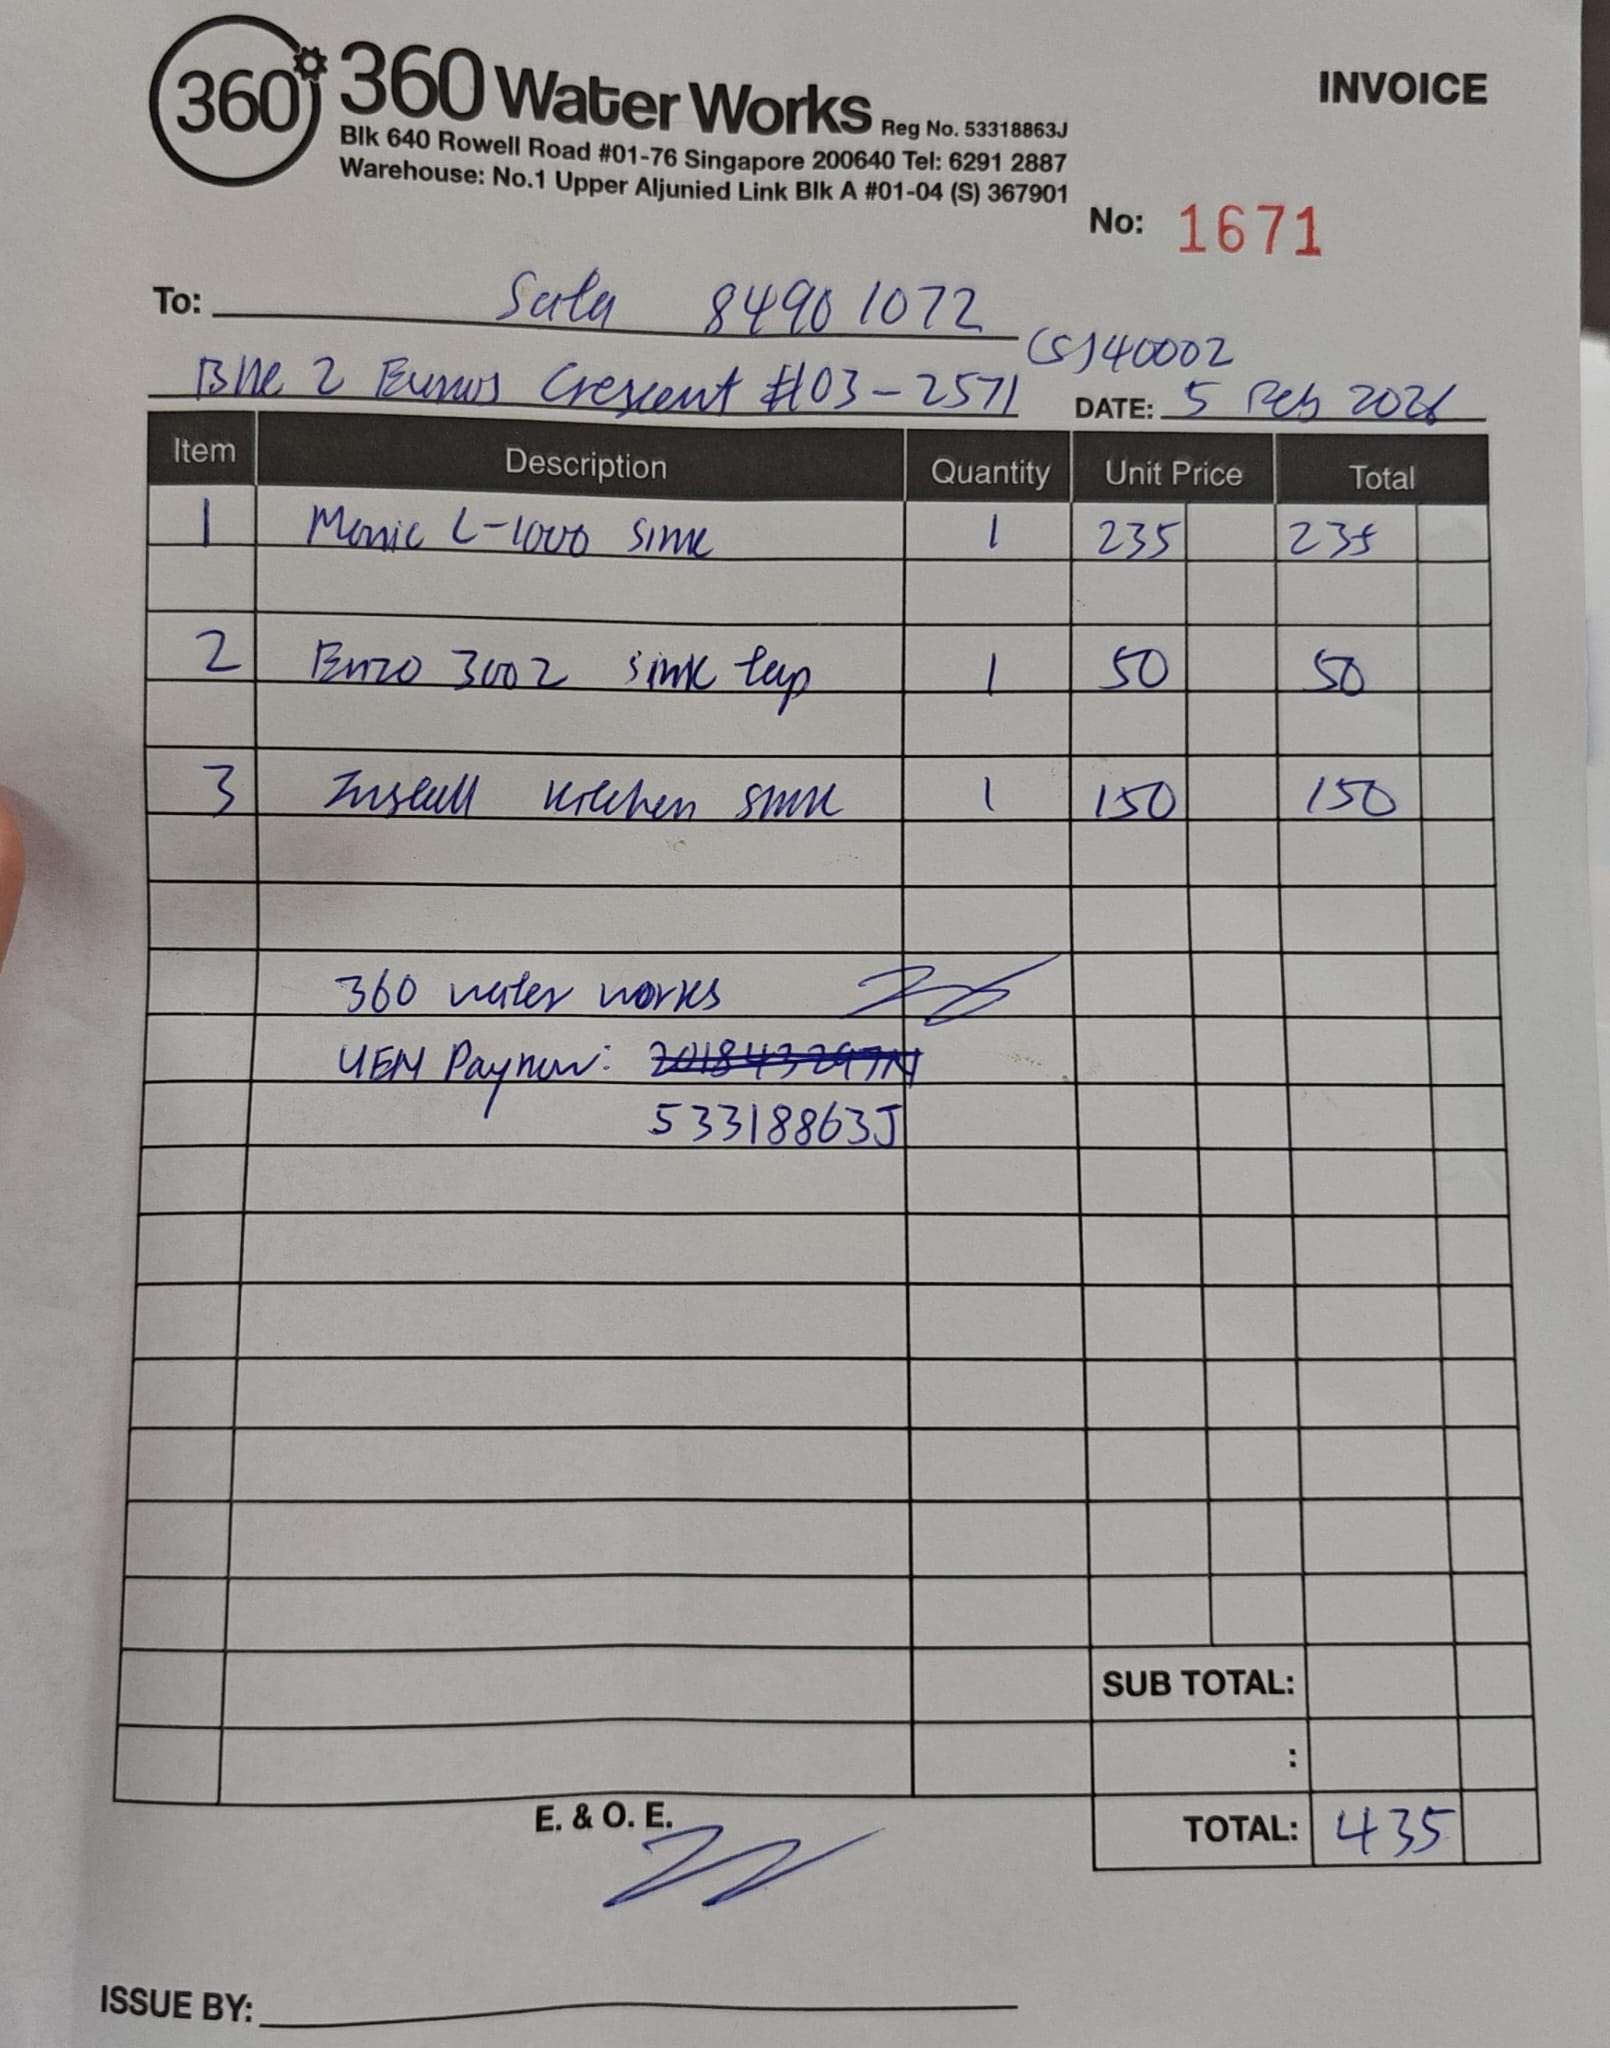 360°
360 Water Works Reg No. 53318863J
INVOICE
Blk 640 Rowell Road #01-76 Singapore 200640 Tel: 6291 2887
Warehouse: No.1 Upper Aljunied Link Blk A #01-04 (S) 367901
No: 1671
To: 84901072
Blk 2 Eunos Crescent #03-2571 (S)40002
DATE: 5 Feb 2026
Item Description Quantity Unit Price Total
1 L-1000 sink 1 235 235
2 Enzo 3002 sink tap 1 50 50
3 Install kitchen sink 1 150 150
360 water works
UEN Paynow: 201843297N
53318863J
SUB TOTAL:
:
E. & O. E.
TOTAL: 435
ISSUE BY: